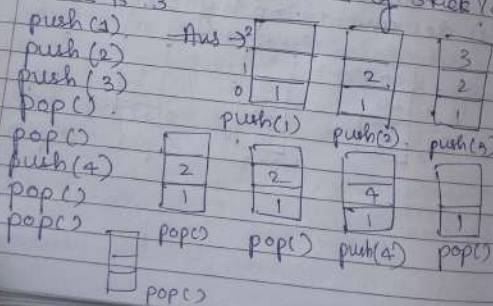 push(1)
push(2)
push(3)
pop()
pop()
push(4)
pop()
pop()
Ans → 2
1
0
1
push(1)
2
1
push(2)
3
2
1
push(3)
2
1
pop()
2
1
pop()
4
1
push(4)
1
pop()
pop()